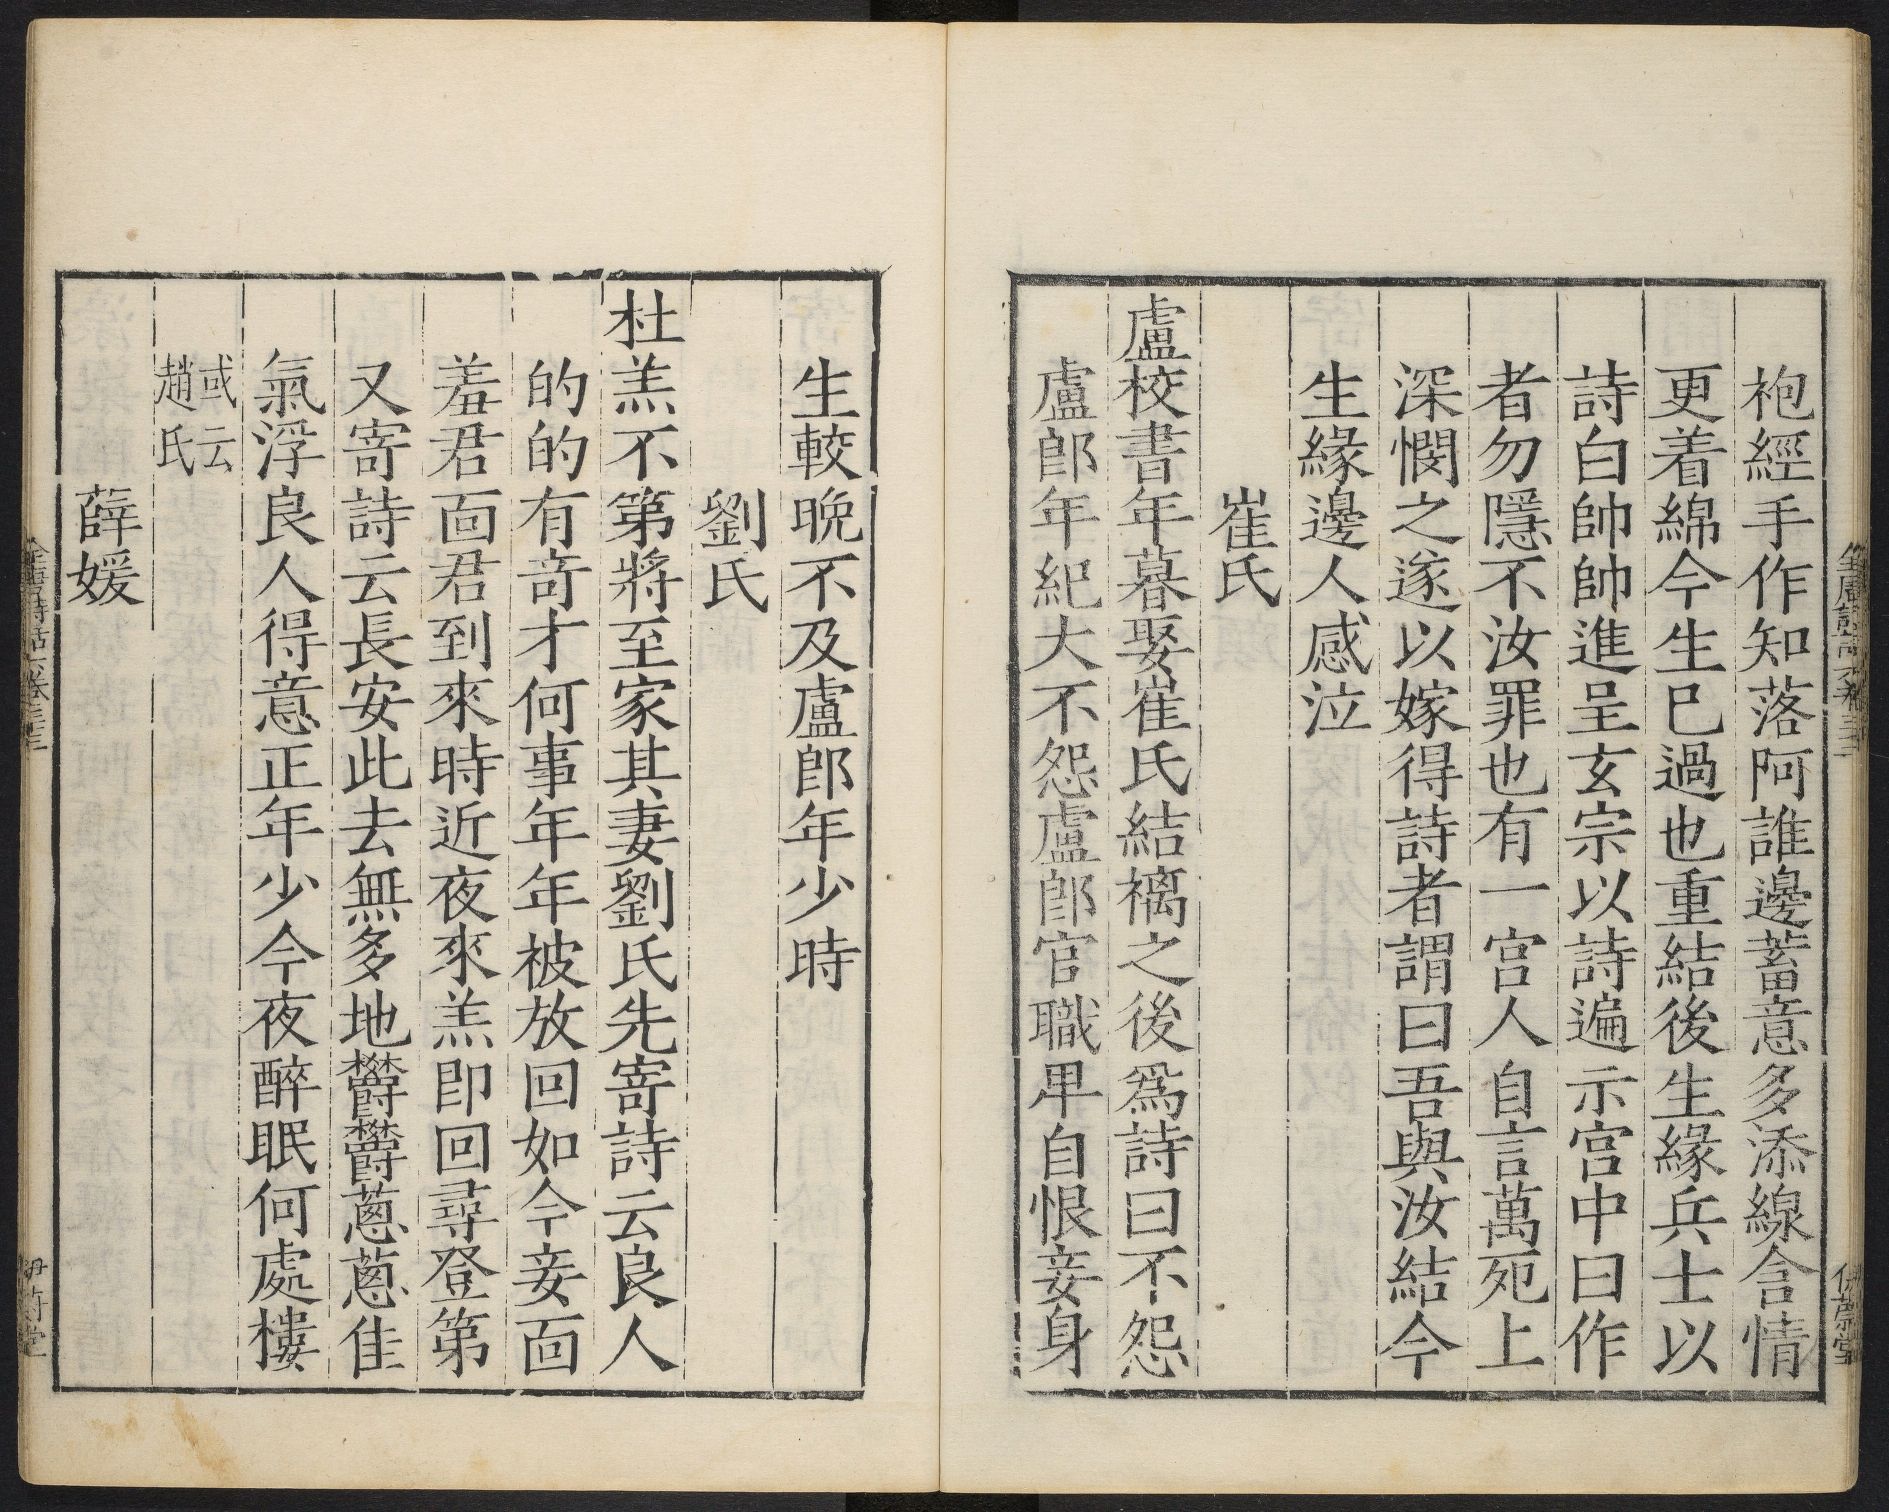 袍經手作知落阿誰邊蓄意多添線含情
更着綿今生已過也重結後生緣兵士以
詩白帥帥進呈玄宗以詩遍示宮中曰作
者勿隱不汝罪也有一宮人自言萬死上
深憫之遂以嫁得詩者謂曰吾與汝結今
生緣邊人感泣
崔氏
盧校書年暮娶崔氏結褵之後爲詩曰不怨
盧郎年紀大不怨盧郎官職卑自恨妾身
生較晚不及盧郎年少時
劉氏
杜羔不第將至家其妻劉氏先寄詩云良人
的的有奇才何事年年被放回如今妾面
羞君面君到來時近夜來羔即回尋登第
又寄詩云長安此去無多地鬱鬱蔥蔥佳
氣浮良人得意正年少今夜醉眠何處樓
或云
趙氏
薛媛
全唐詩話 卷三